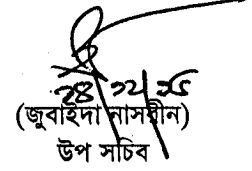 ২৪/১২/১৮
(জুবাইদা নাসরীন)
উপ সচিব